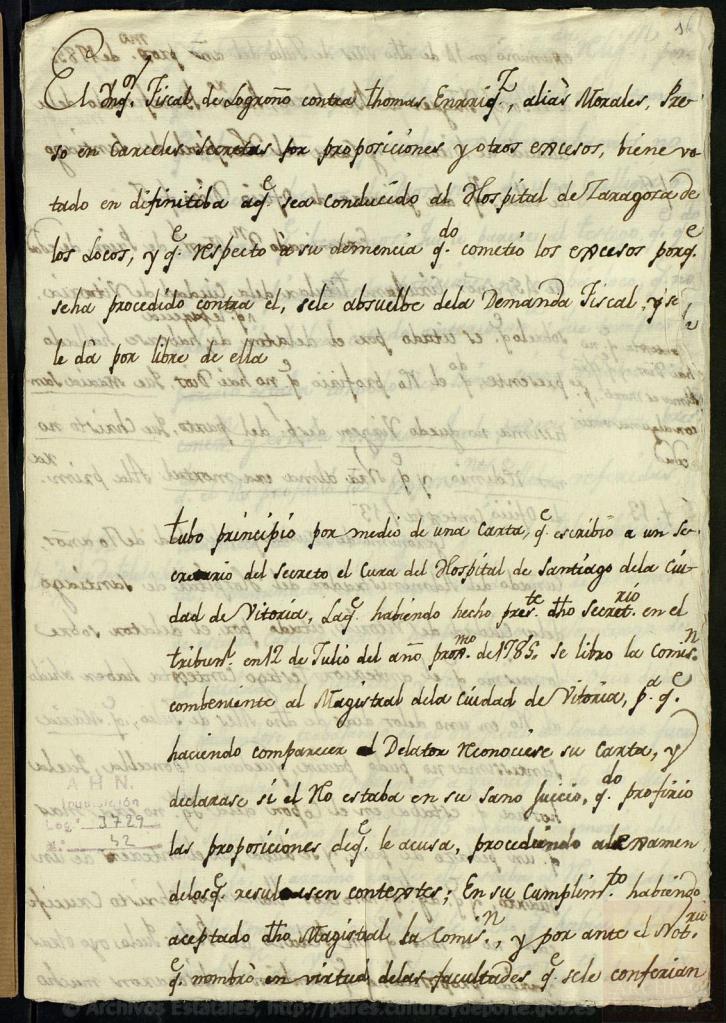 El Ynq.or Fiscal de Logroño contra thomas Enrriq.z, aliàs Morales, Pre-
so en Carceles Secretas por proposiciones y otros excesos, biene vo-
tado en difinitiba aq.e sea conducido al Hospital de Zaragoza de
los Locos, y q.e respecto à su demencia q.do cometio los excesos porq.e
seha procedido contra el, sele absuelbe dela Demanda Fiscal, y se
le dà por libre de ella
tubo principio por medio de una Carta, q.e escribiò a un Se-
cretario del Secreto el Cura del Hospital de Santiago dela Ciu-
dad de Vitoria, Laq.e habiendo hecho pres.te dho Secret.rio en el
tribun.l en 12 de Julio del año prox.mo de 1785. se librò la Comis.n
combeniente al Magistral dela Ciudad de Vitoria, p.a q.e
haciendo comparecer al Delator reconociese su Carta, y
declarase si el Reo estaba en su sano Juicio, q.do profirio
las proposiciones deq.e le acusa, procediendo al examen
delosq.e resultasen contextes; En su Cumplim.to habiendo
aceptado dho Magistral la Comis.n, y por ante el Not.rio
q.e nombrò en virtud delas facultades q.e sele conferian
A H N.
Inquisición
Leg.º 3729
n.º 32
© Archivos Estatales, http://pares.culturaydeporte.gob.es